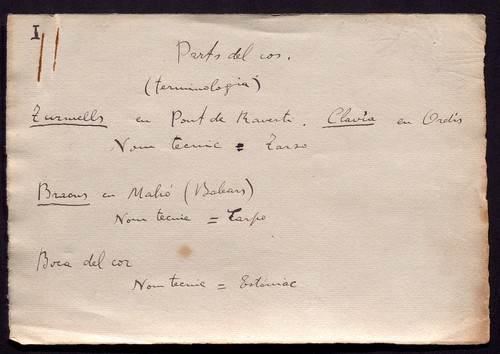 I
Parts del cos.
(terminologia)
Turmells en Pont de Raventí. Clavia en Ordis
Nom tecnic = Tarzo
Braons en Mahó (Balears)
Nom tecnic = Carpo
Boca del cor
Nom tecnic = Estómac